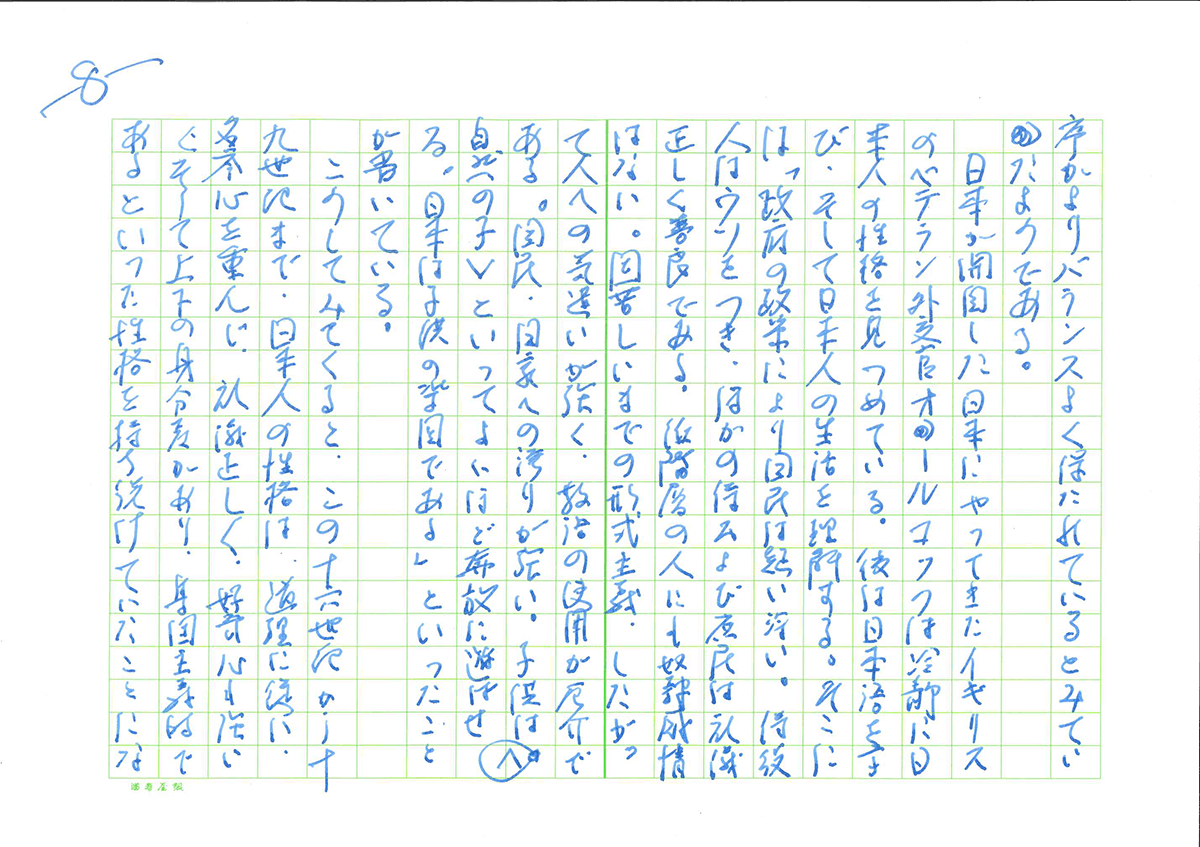 8
序がよりバランスよく保たれているとみてい
たようである。
日本が開国した日本にやってきたイギリス
のベテラン外交官オールコックは冷静に日
本人の性格を見つめている。彼は日本語を学
び、そして日本人の生活を理解する。そこに
は、「政府の政策により国民は疑い深い。得役
人はウソをつき、ほかの侍および庶民は礼儀
正しく善良である。低階層の人にも奴隷感情
はない。固苦しいまでの形式主義、したがっ
て人への気遣いが強く、敬語の使用が厄介で
ある。国民・国家への誇りが強い。子供は
自然への子〉といってよいほど奔放に遊ばせ
〈
る。日本は子供の楽園である」といったこと
が書いている。
こうしてみてくると、この十六世紀から十
九世紀まで、日本人の性格は、道理に従い、
名誉心を重んじ、礼儀正しく、好奇心も強い
。そして上下の身分差があり、集団主義的で
あるといった性格を持ち続けていたことにな